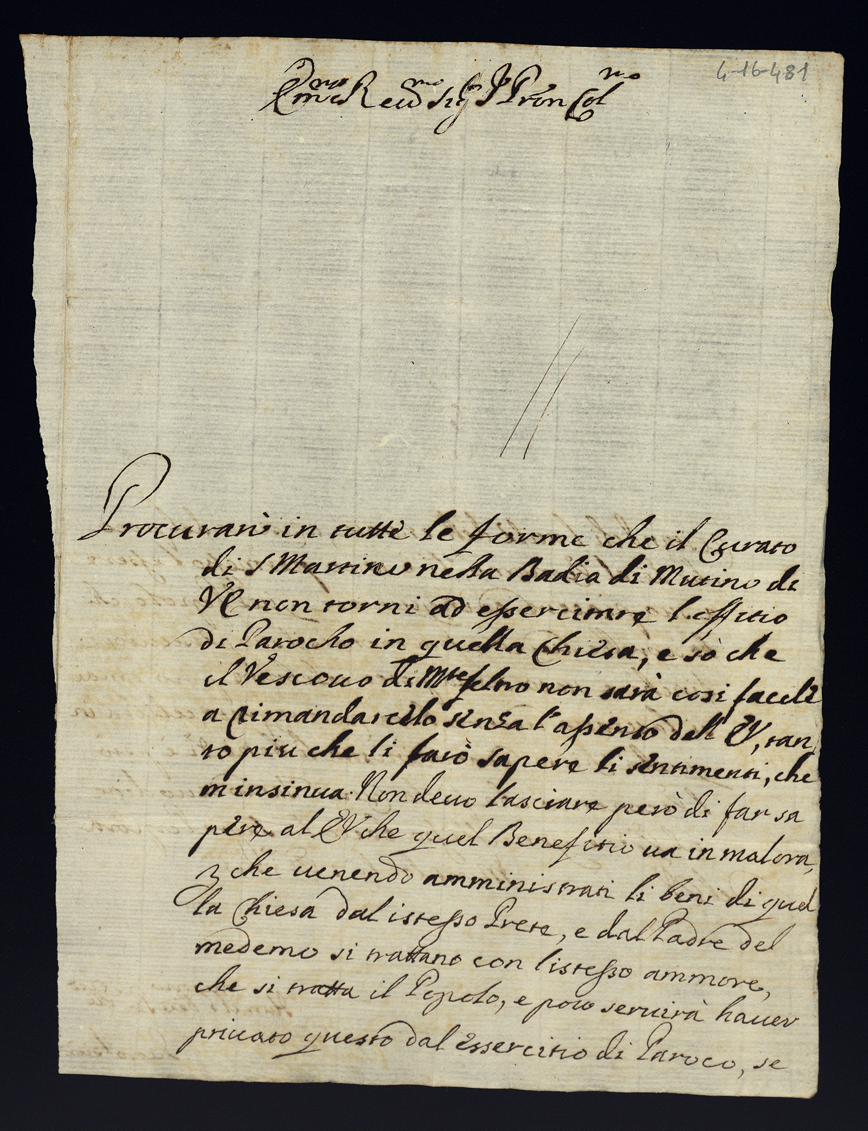 4-16-481
Em.mo e Rev.mo Sig.r P.ron Col.mo
Procurarò in tutte le forme che il Curato
di S Martino nella Badia di Mutino di
VE non torni ad essercitare l'offitio
di Parocho in quella Chiesa, e sò che
il Vescovo di Mte feltro non sarà cosi facele
a rimandarcelo senza l'assenso dell' EV, tan
to piu che li farò sapere li sentimenti, che
m'insinua. Non devo lasciare però di far sa
pere al EV che quel Benefitio va in malora,
che venendo amministrati li beni di quel
la Chiesa dal istesso Prete, e dal Padre del
medemo si trattano con l'istesso ammore,
che si tratta il Popolo, e poco servirà haver
privato questo dal Essercitio di Paroco, se